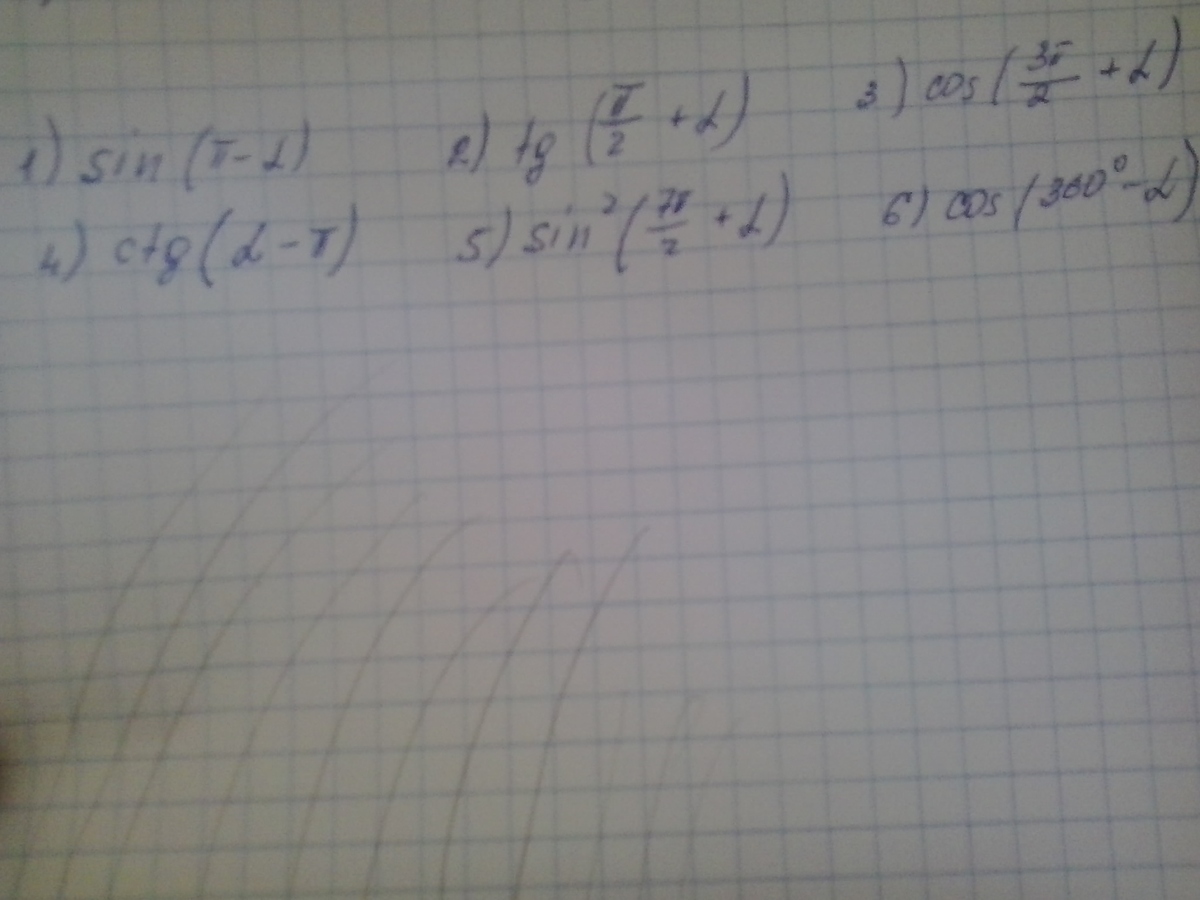 1) sin (π - α) 2) tg (π/2 + α) 3) cos (3π/2 + α)
4) ctg (α - π) 5) sin² (7π/2 + α) 6) cos (360° - α)